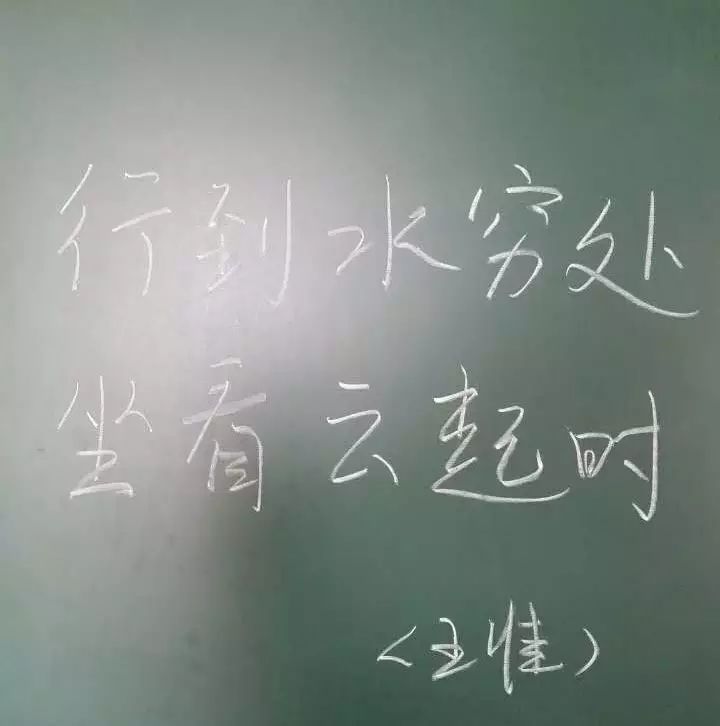 行到水穷处
坐看云起时
〈王维〉